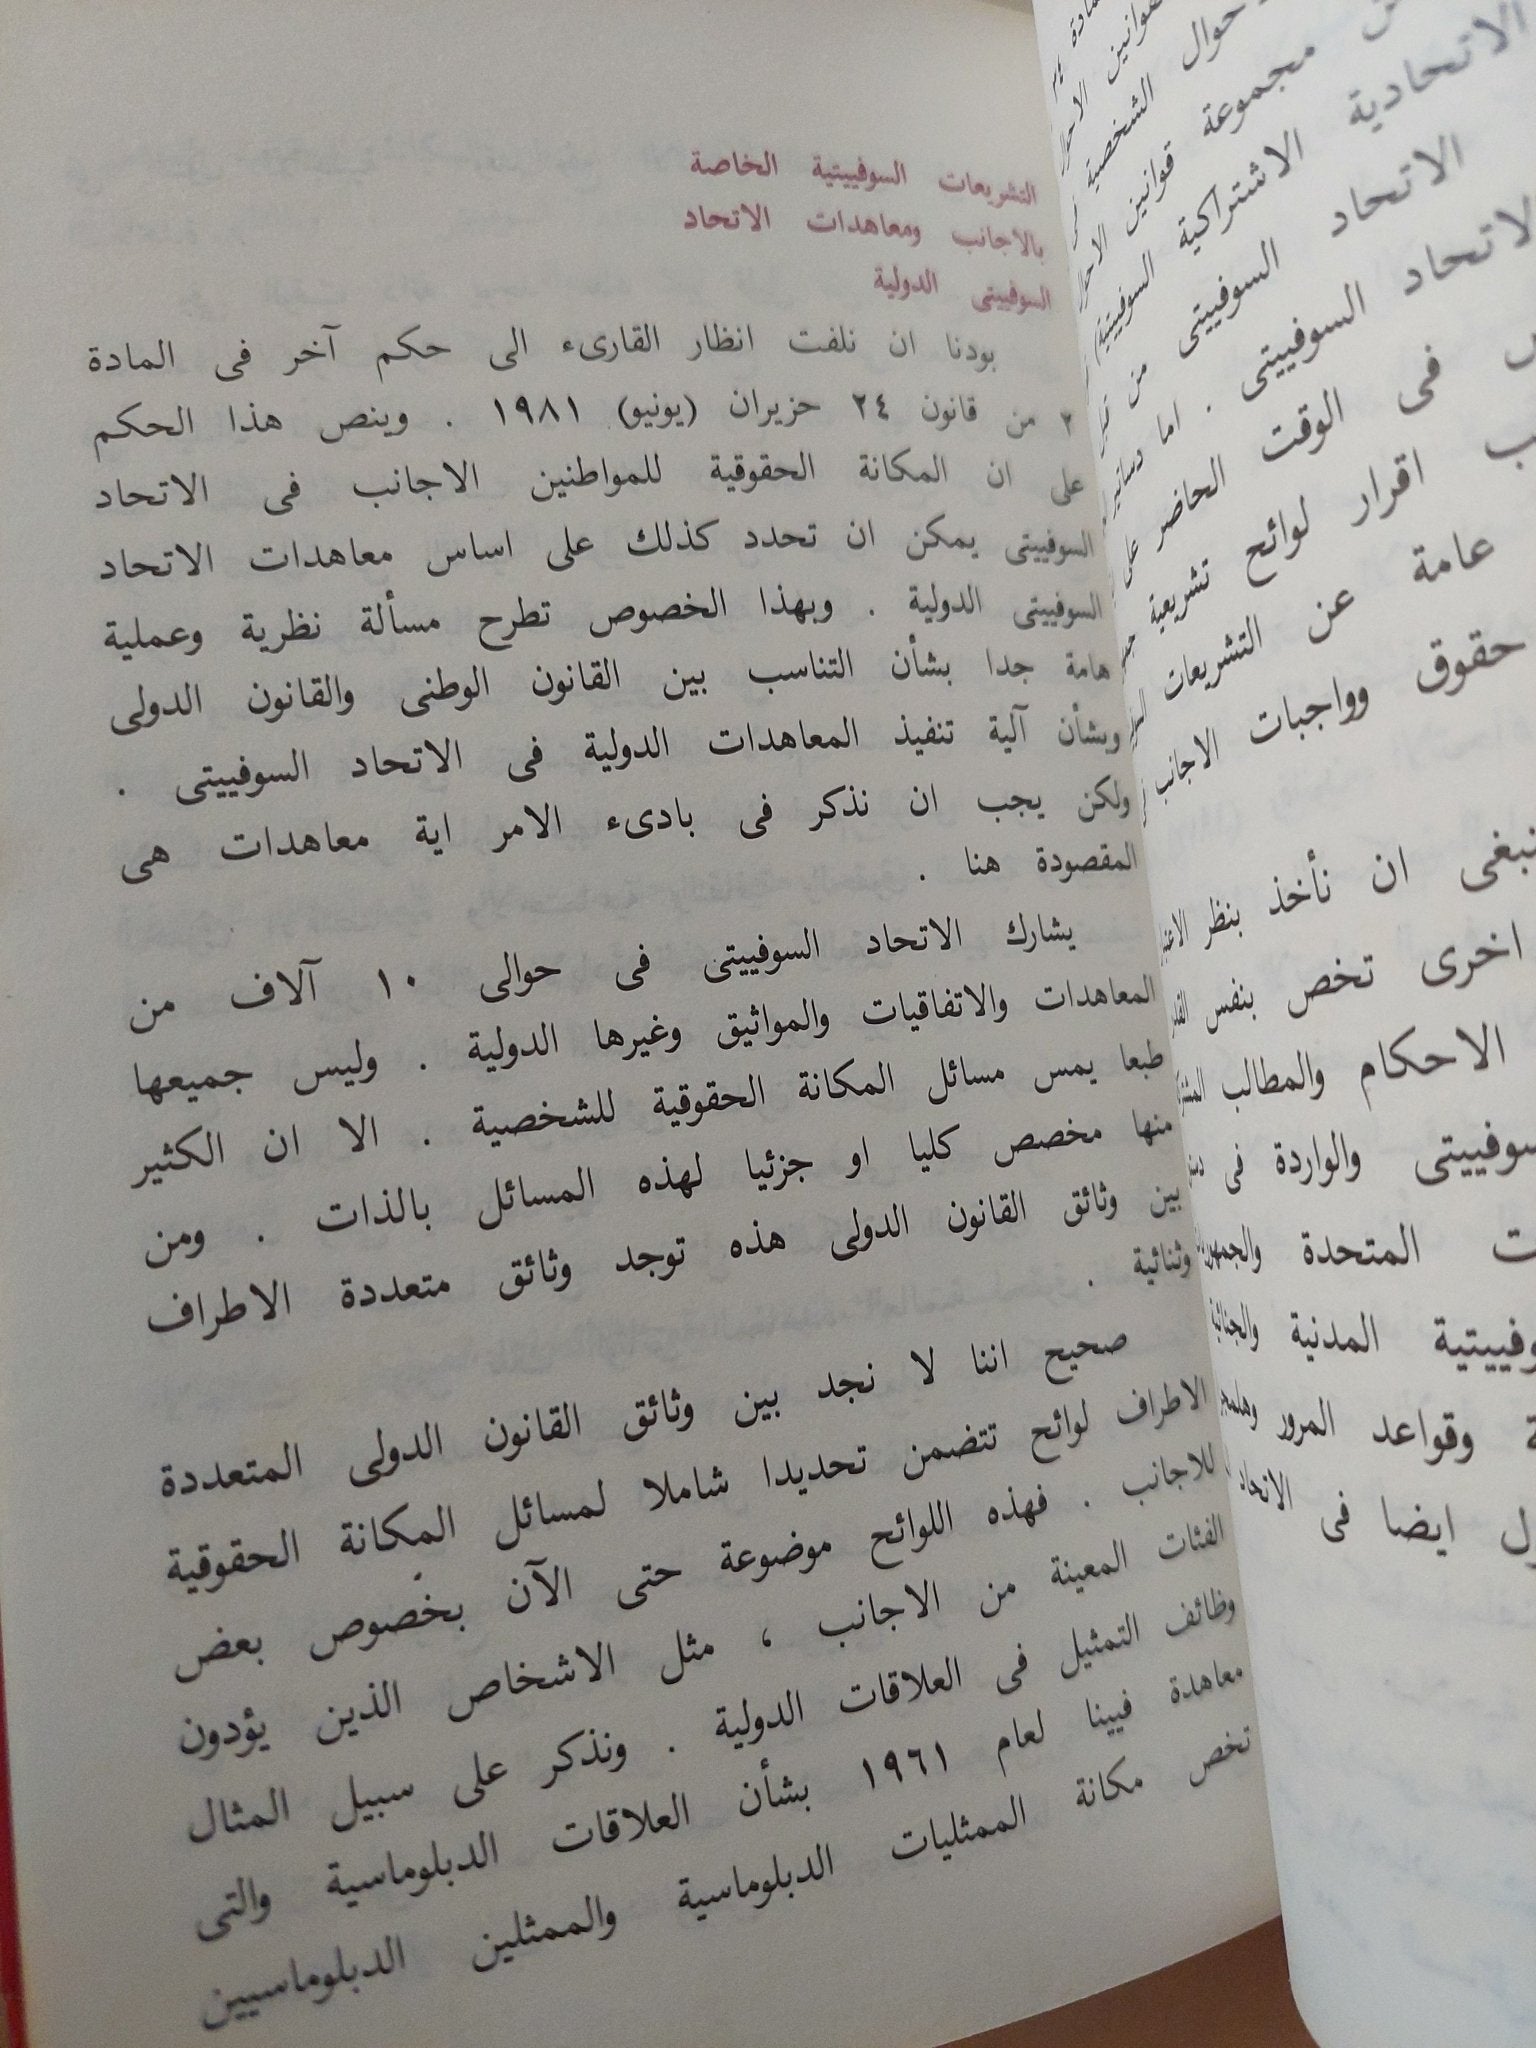 التشريعات السوفييتية الخاصة
بالاجانب ومعاهدات الاتحاد
السوفييتى الدولية
بودنا ان نلفت انظار القارىء الى حكم آخر فى المادة
٢ من قانون ٢٤ حزيران (يونيو) ١٩٨١ . وينص هذا الحكم
على ان المكانة الحقوقية للمواطنين الاجانب فى الاتحاد
السوفييتى يمكن ان تحدد كذلك على اساس معاهدات الاتحاد
السوفييتى الدولية . وبهذا الخصوص تطرح مسألة نظرية وعملية
هامة جدا بشأن التناسب بين القانون الوطنى والقانون الدولى
وبشأن آلية تنفيذ المعاهدات الدولية فى الاتحاد السوفييتى .
ولكن يجب ان نذكر فى بادىء الامر اية معاهدات هى
المقصودة هنا .
يشارك الاتحاد السوفييتى فى حوالى ١٠ آلاف من
المعاهدات والاتفاقيات والمواثيق وغيرها الدولية . وليس جميعها
طبعا يمس مسائل المكانة الحقوقية للشخصية . الا ان الكثير
منها مخصص كليا او جزئيا لهذه المسائل بالذات . ومن
بين وثائق القانون الدولى هذه توجد وثائق متعددة الاطراف
وثنائية .
صحيح اننا لا نجد بين وثائق القانون الدولى المتعددة
الاطراف لوائح تتضمن تحديدا شاملا لمسائل المكانة الحقوقية
للاجانب . فهذه اللوائح موضوعة حتى الآن بخصوص بعض
الفئات المعينة من الاجانب ، مثل الاشخاص الذين يؤدون
وظائف التمثيل فى العلاقات الدولية . ونذكر على سبيل المثال
معاهدة فيينا لعام ١٩٦١ بشأن العلاقات الدبلوماسية والتى
تخص مكانة الممثليات الدبلوماسية والممثلين الدبلوماسيين
الشخصية
مجموعة قوانين
الاتحادية الاشتراكية السوفييتية)
الاتحاد السوفييتى من
الاتحاد السوفييتى . اما
فى الوقت الحاضر على
اقرار لوائح تشريعية
عامة عن التشريعات
حقوق وواجبات الاجانب
ان نأخذ بنظر
اخرى تخص بنفس
الاحكام والمطالب
والواردة فى
المتحدة
المدنية
وقواعد المرور
ايضا فى الاتحاد